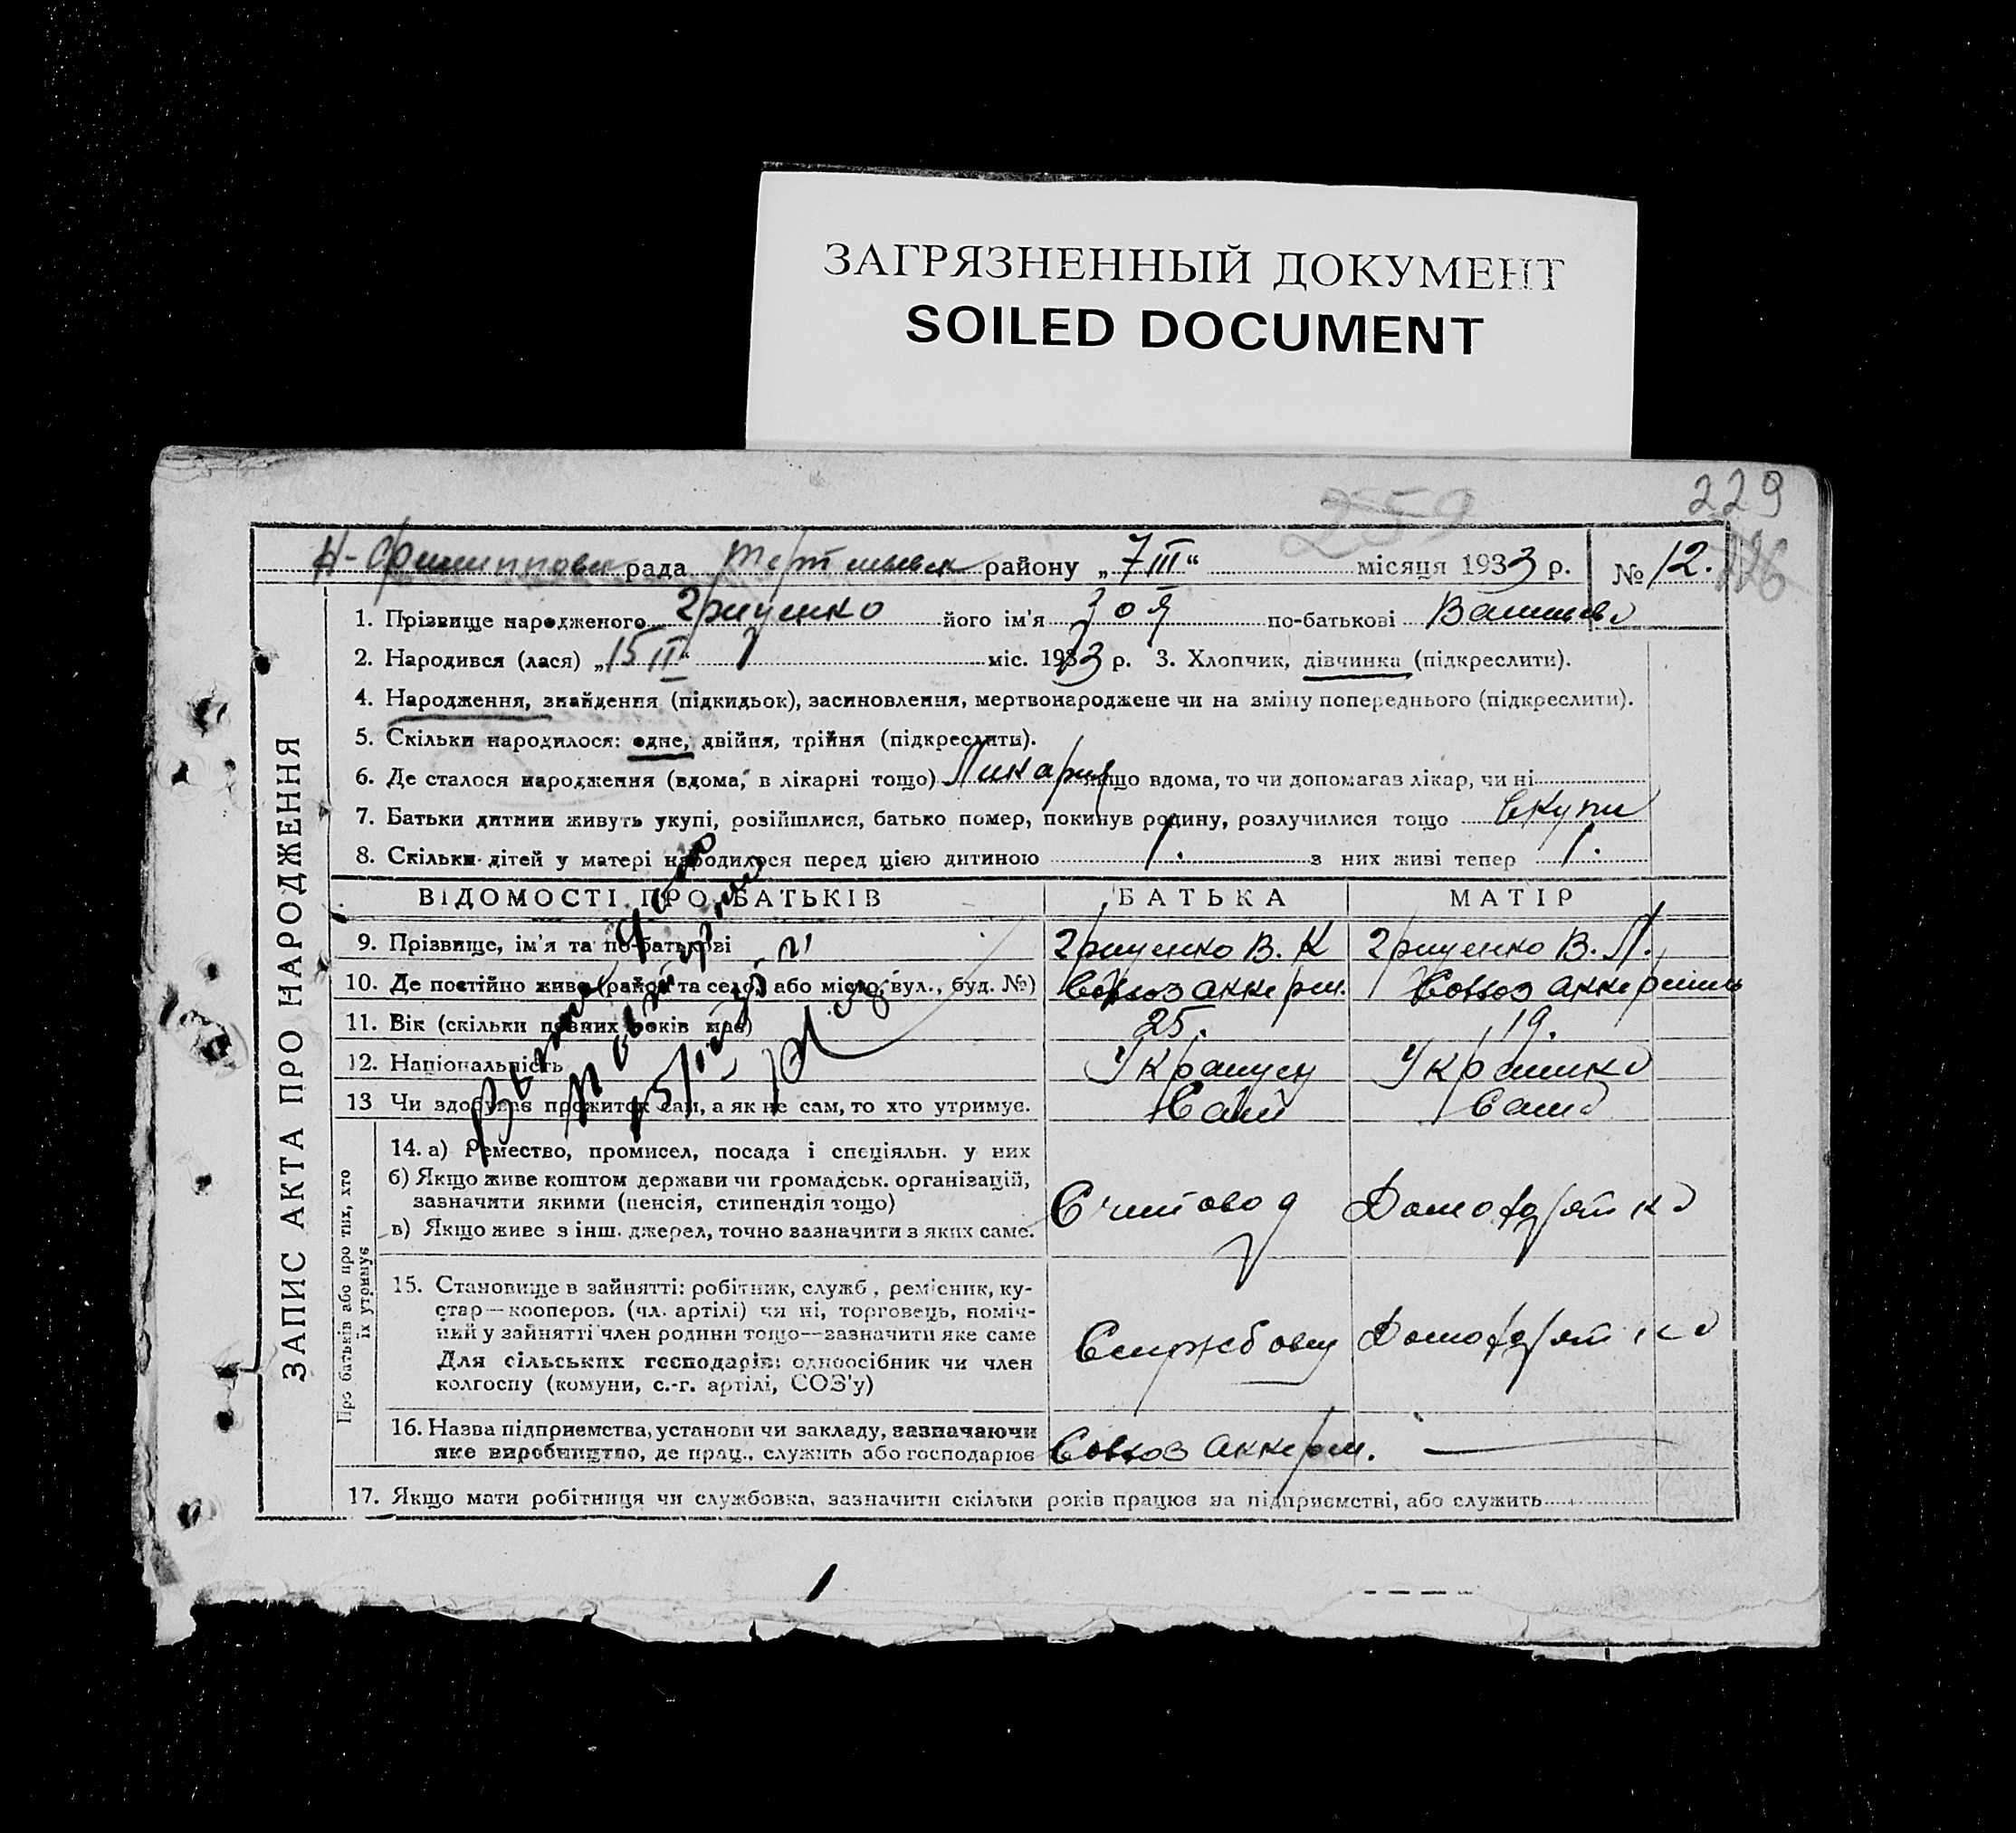 ЗАГРЯЗНЕННЫЙ ДОКУМЕНТ
SOILED DOCUMENT
229
259
рада району „7 III“ місяця 1933 р. № 12.
ЗАПИС АКТА ПРО НАРОДЖЕННЯ
1. Прізвище народженого Грищенко його ім'я Зоя по-батькові
2. Народився (лася) „15 II“ міс. 1933 р. 3. Хлопчик, дівчинка (підкреслити).
4. Народження, знайдення (підкидьок), засиновлення, мертвонароджене чи на зміну попереднього (підкреслити).
5. Скільки народилося: одне, двійня, трійня (підкреслити).
6. Де сталося народження (вдома, в лікарні тощо) якщо вдома, то чи допомагав лікар, чи ні
7. Батьки дитини живуть укупі, розійшлися, батько помер, покинув родину, розлучилися тощо Вкупи
8. Скільки дітей у матері народилося перед цією дитиною 1. з них живі тепер 1.
ВІДОМОСТІ ПРО БАТЬКІВ БАТЬКА МАТІР
9. Прізвище, ім'я та по-батькові Грищенко В. К Грищенко В. П.
10. Де постійно живе (район та село, або місто, вул., буд. №) Совхоз Аккерм. Совхоз
11. Вік (скільки повних років має) 25. 19.
12. Національність Украинец Украинка
13 Чи здобуває прожиток сам, а як не сам, то хто утримує. Сам Сама
Про батьків або про тих, хто їх утримує
14. а) Ремество, промисел, посада і спеціяльн. у них
б) Якщо живе коштом держави чи громадськ. організацій,
зазначити якими (пенсія, стипендія тощо) Считовод
в) Якщо живе з інш. джерел, точно зазначити з яких саме.
15. Становище в зайнятті: робітник, служб., ремісник, ку-
стар—кооперов. (чл. артілі) чи ні, торговець, поміч-
ний у зайнятті член родини тощо—зазначити яке саме
Для сільських господарів: одноосібник чи член
колгоспу (комуни, с.-г. артілі, СОЗ'у)
16. Назва підприємства, установи чи закладу, зазначаючи
яке виробництво, де прац., служить або господарює Совхоз Аккерм.
17. Якщо мати робітниця чи службовка, зазначити скільки років працює на підприємстві, або служить